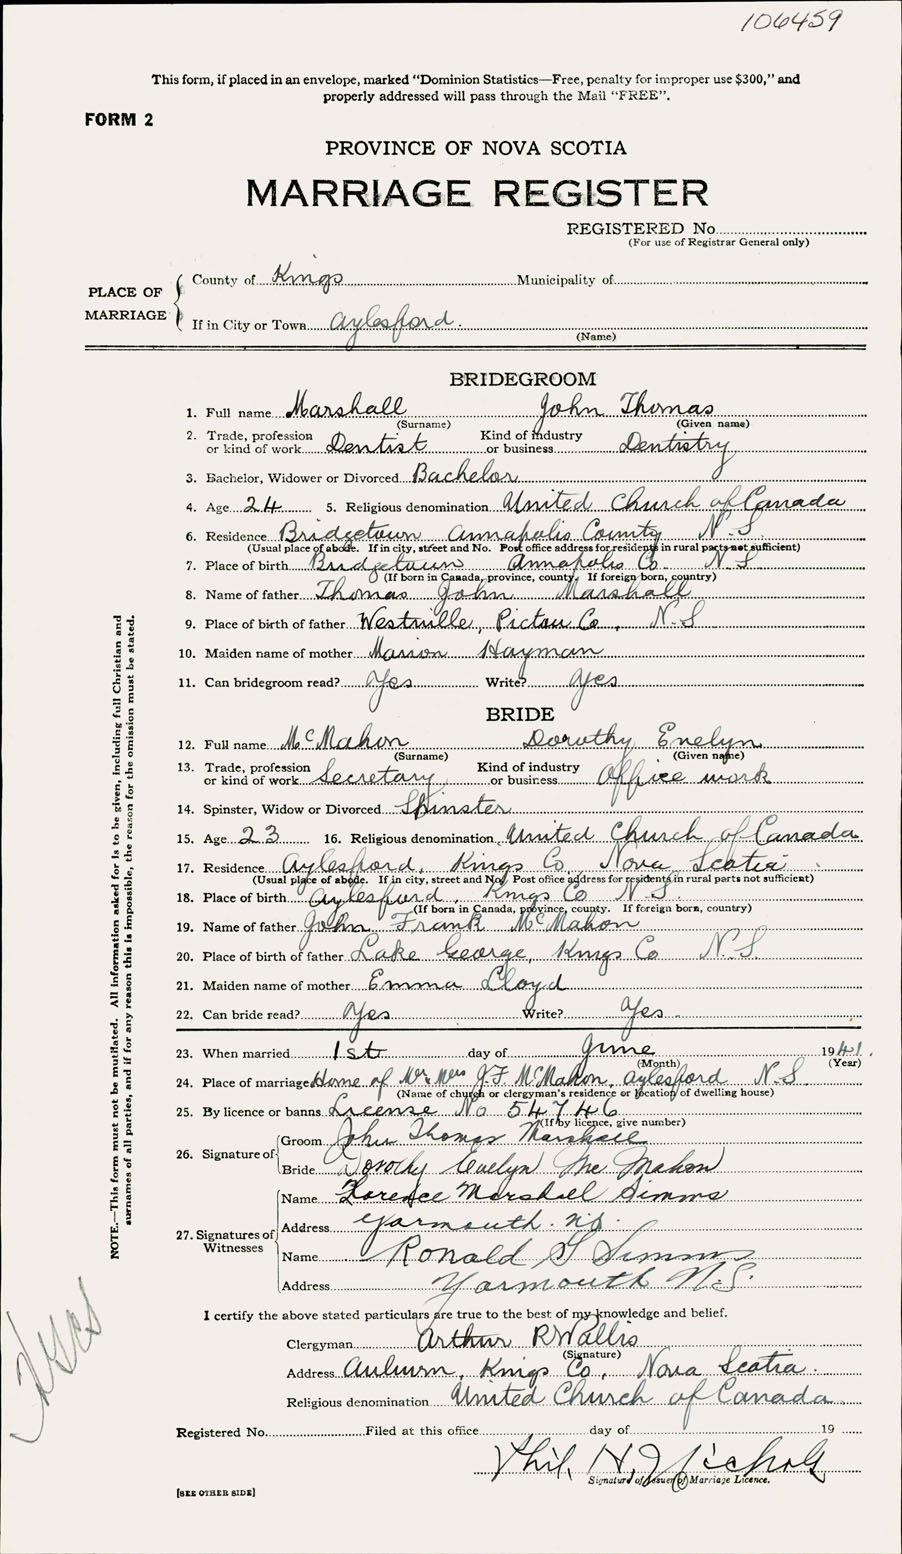 106459
This form, if placed in an envelope, marked “Dominion Statistics—Free, penalty for improper use $300,” and
properly addressed will pass through the Mail “FREE”.
FORM 2
PROVINCE OF NOVA SCOTIA
MARRIAGE REGISTER
REGISTERED No.
(For use of Registrar General only)
PLACE OF MARRIAGE
County of Kings Municipality of
If in City or Town Aylesford.
(Name)
BRIDEGROOM
1. Full name Marshall John Thomas
(Surname) (Given name)
2. Trade, profession or kind of work Dentist Kind of industry or business Dentistry
3. Bachelor, Widower or Divorced Bachelor
4. Age 24 5. Religious denomination United Church of Canada
6. Residence Bridgetown Annapolis County N.S.
(Usual place of abode. If in city, street and No. Post office address for residents in rural parts not sufficient)
7. Place of birth Bridgetown Annapolis Co. N.S.
(If born in Canada, province, county. If foreign born, country)
8. Name of father Thomas John Marshall
9. Place of birth of father Westville, Pictou Co. N.S
10. Maiden name of mother Marion Hayman
11. Can bridegroom read? Yes Write? Yes
BRIDE
12. Full name McMahon Dorothy Evelyn
(Surname) (Given name)
13. Trade, profession or kind of work Secretary Kind of industry or business Office work
14. Spinster, Widow or Divorced Spinster
15. Age 23 16. Religious denomination United Church of Canada
17. Residence Aylesford, Kings Co Nova Scotia
(Usual place of abode. If in city, street and No. Post office address for residents in rural parts not sufficient)
18. Place of birth Aylesford, Kings Co N.S.
(If born in Canada, province, county. If foreign born, country)
19. Name of father John Frank McMahon
20. Place of birth of father Lake George, Kings Co N.S.
21. Maiden name of mother Emma Lloyd
22. Can bride read? Yes Write? Yes
23. When married 1st day of June 1941.
(Month) (Year)
24. Place of marriage Home of Mr. Mrs J.F. McMahon, Aylesford N.S
(Name of church or clergyman's residence or location of dwelling house)
25. By licence or banns License No 54746
(If by licence, give number)
26. Signature of
Groom John Thomas Marshall
Bride Dorothy Evelyn McMahon
27. Signatures of Witnesses
Name Florence Marshall Simms
Address Yarmouth. N.S.
Name Ronald G Simms
Address Yarmouth N.S.
I certify the above stated particulars are true to the best of my knowledge and belief.
Clergyman Arthur R Wallis
(Signature)
Address Auburn, Kings Co, Nova Scotia.
Religious denomination United Church of Canada.
Registered No. Filed at this office day of 19
Phil. H. Nichols
Signature of Issuer of Marriage Licence.
[SEE OTHER SIDE]
NOTE.—This form must not be mutilated. All information asked for is to be given, including full Christian and
surnames of all parties, and if for any reason this is impossible, the reason for the omission must be stated.